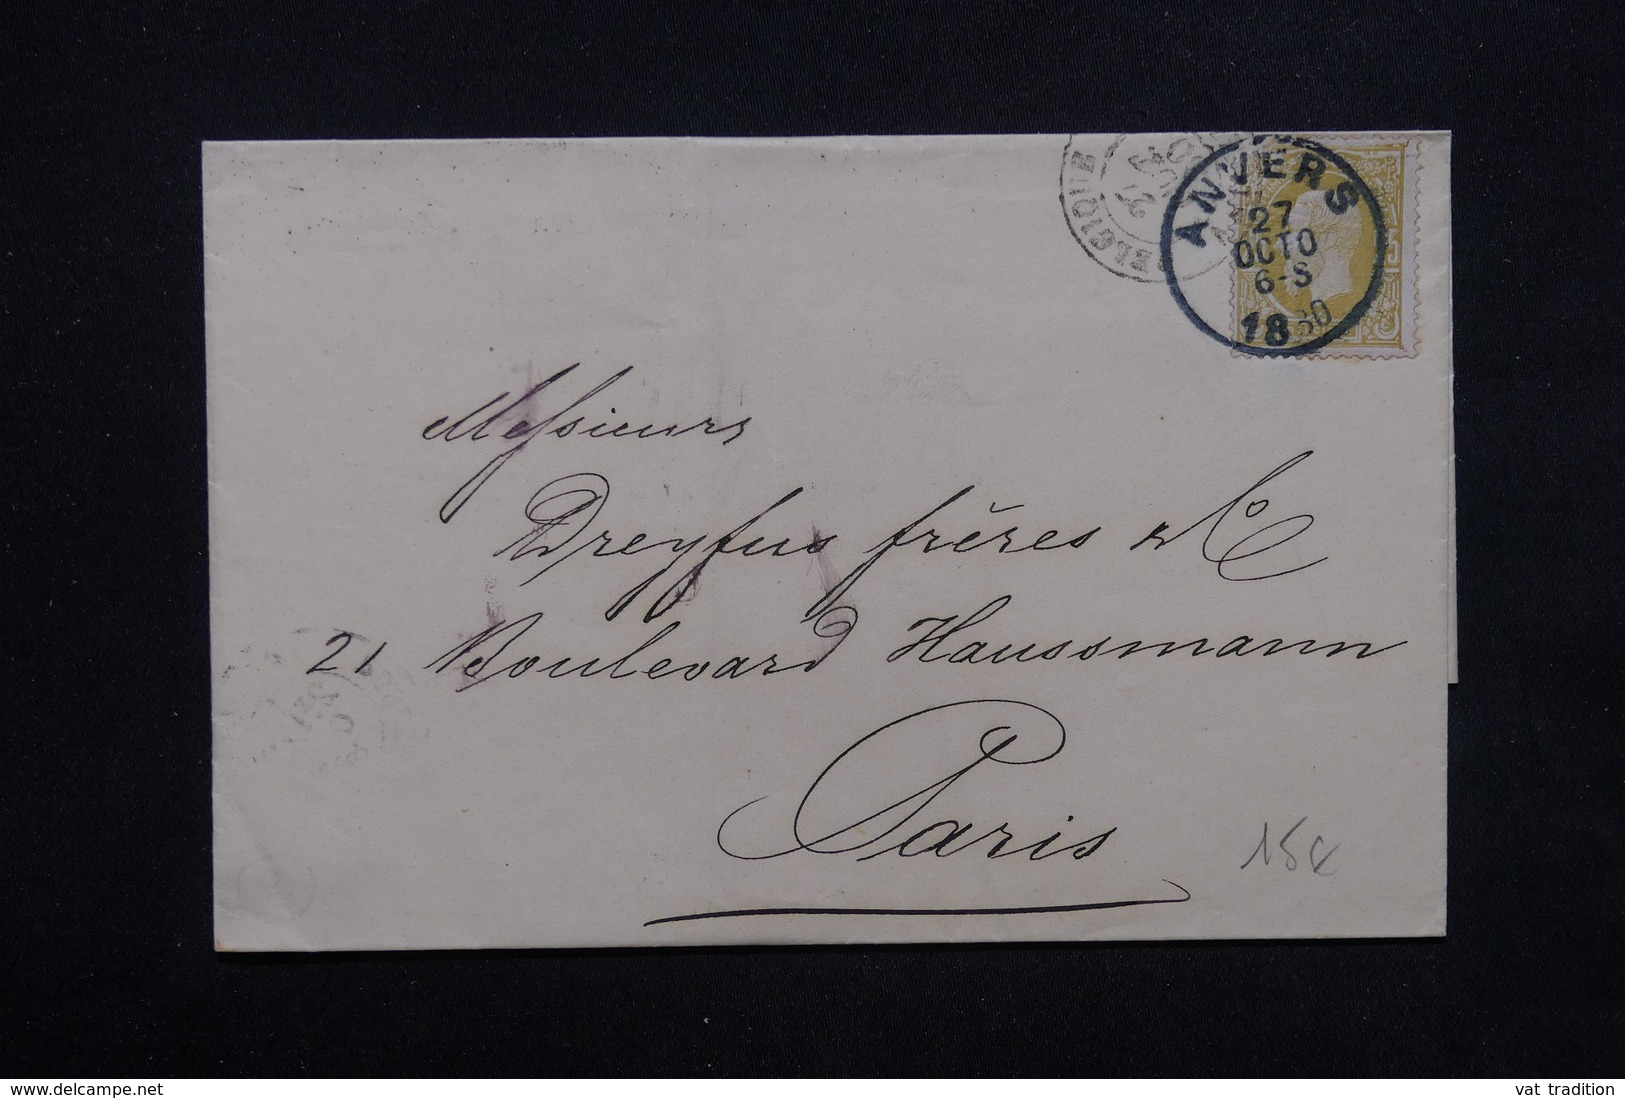 BELGIQUE
ANVERS
27
OCTO
6-S
1880
Messieurs
Dreyfus frères & Co
21 Boulevard Haussmann
Paris
15€
www.delcampe.net
vat tradition